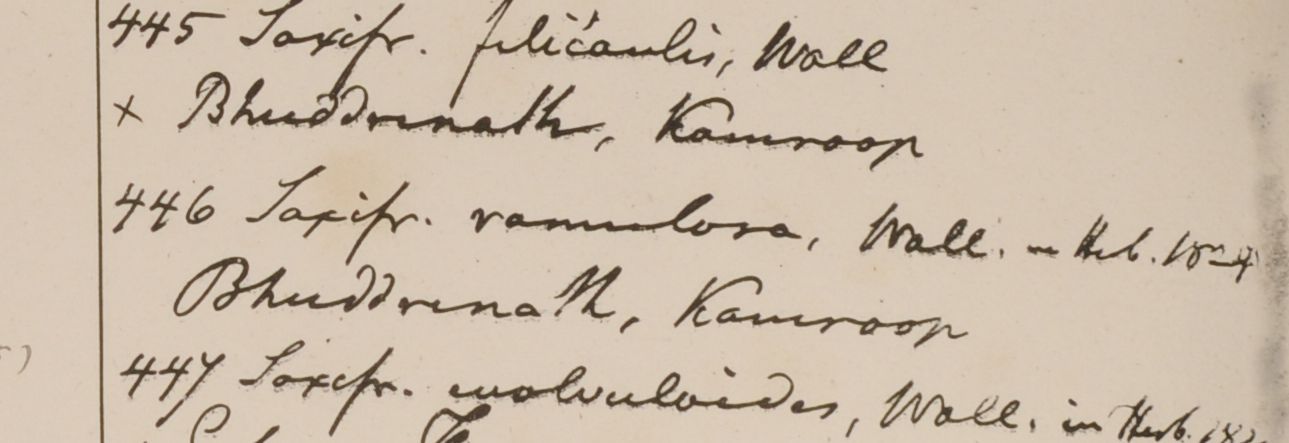 445 Saxifr. filicaulis, Wall
+ Bhuddrinath, Kamroop
446 Saxifr. ramulosa, Wall. in Herb. 1824
Bhuddrinath, Kamroop
447 Saxifr. evolvuloides, Wall. in Herb.